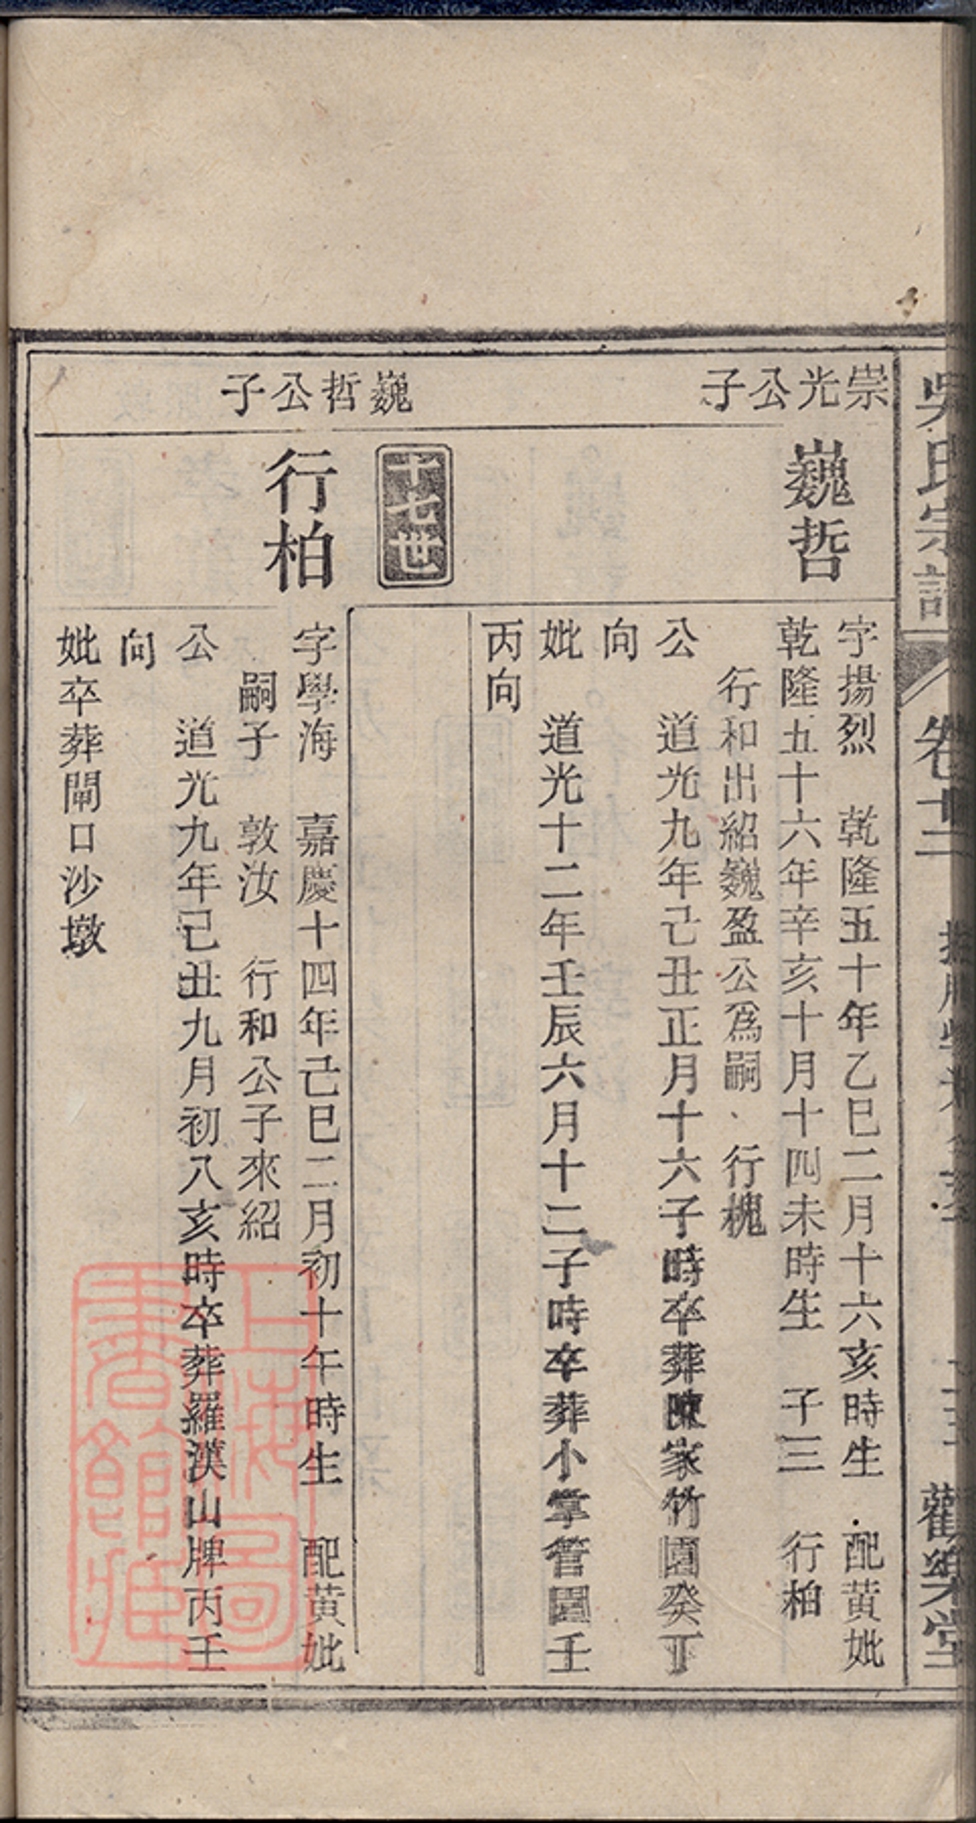 吳氏宗譜
卷廿二
觀樂堂
崇光公子
巍哲
字揚烈 乾隆五十年乙巳二月十六亥時生 配黄妣
乾隆五十六年辛亥十月十四未時生 子三 行柏
行和出紹巍盈公爲嗣 行槐
公 道光九年己丑正月十六子時卒葬陳家竹園癸丁
向
妣 道光十二年壬辰六月十二子時卒葬小掌管園壬
丙向
巍哲公子
十七世
行柏
字學海 嘉慶十四年己巳二月初十午時生 配黄妣
嗣子 敦汝 行和公子來紹
公 道光九年己丑九月初八亥時卒葬羅漢山牌丙壬
向
妣卒葬閘口沙墩
上海圖
書館藏